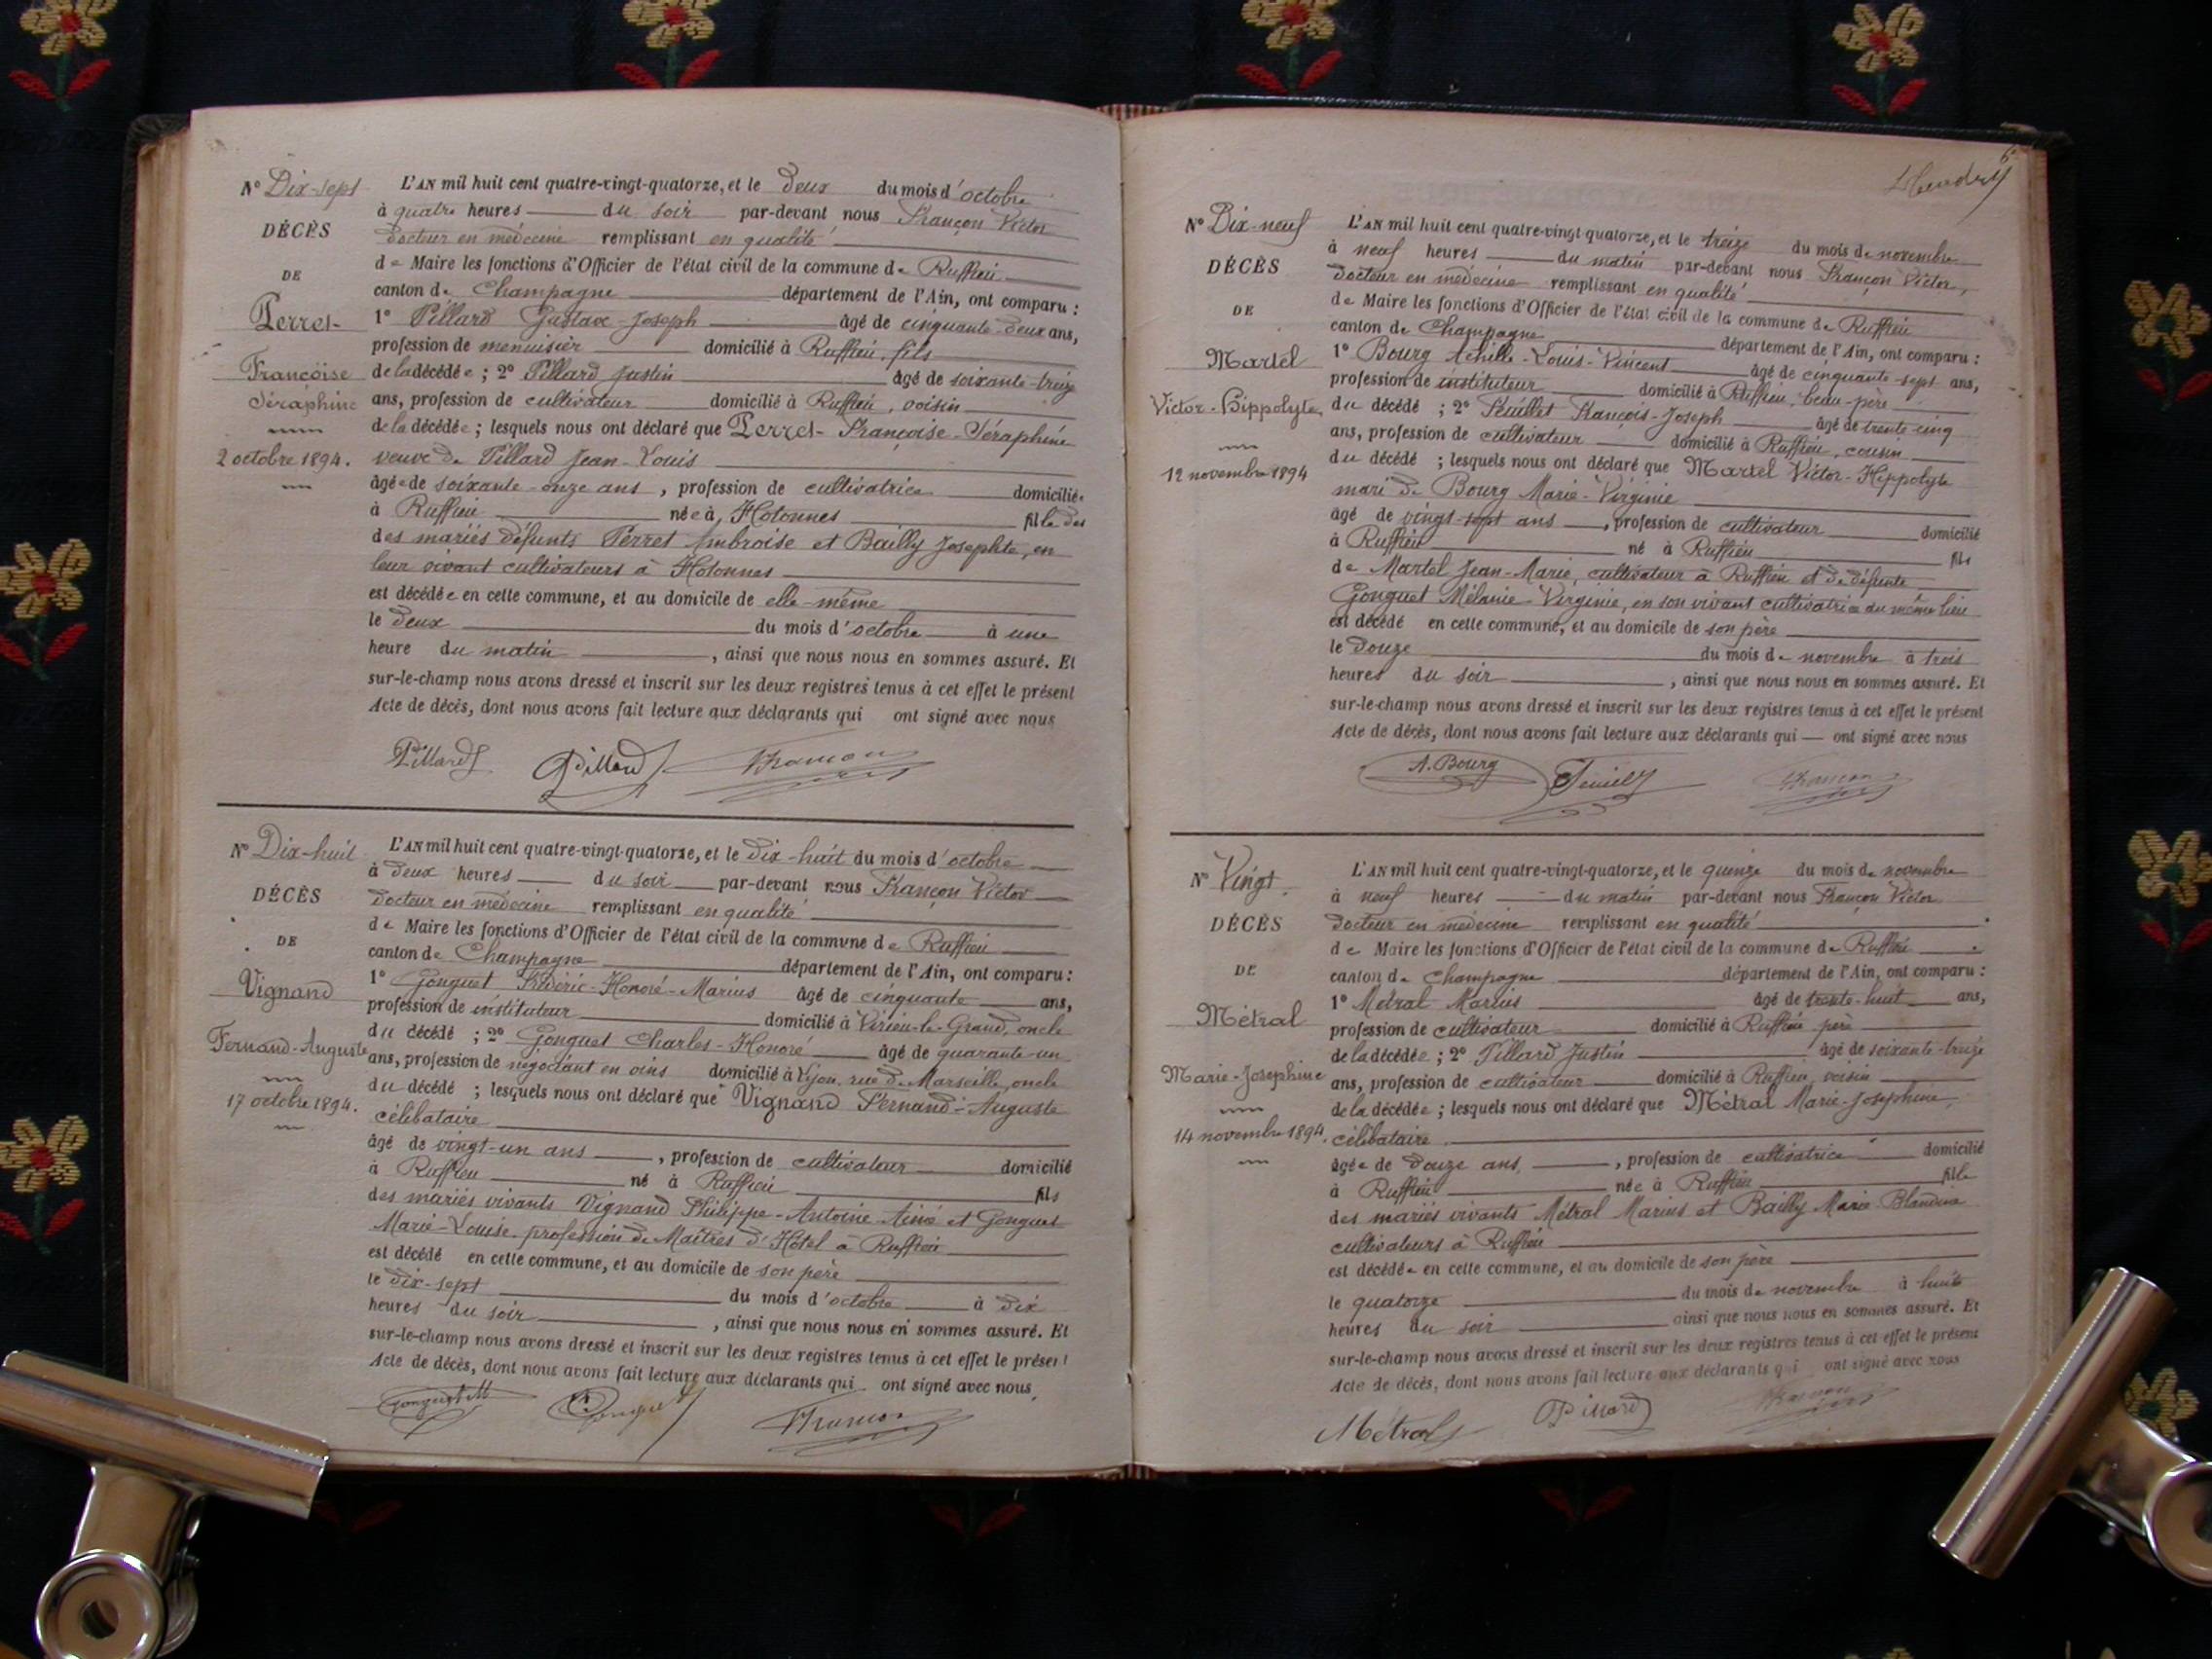 Nº Dix-sept
DÉCÈS
DE
Perret
Françoise
Séraphine
2 octobre 1894.
L'AN mil huit cent quatre-vingt-quatorze, et le deux du mois d'octobre
à quatre heures du soir par-devant nous Françon Victor
docteur en médecine remplissant en qualité
de Maire les fonctions d'Officier de l'état civil de la commune de Ruffieu
canton de Champagne département de l'Ain, ont comparu :
1º Pillard Gustave-Joseph âgé de cinquante-deux ans,
profession de menuisier domicilié à Ruffieu, fils
de la décédée ; 2º Pillard Justin âgé de soixante-treize
ans, profession de cultivateur domicilié à Ruffieu, voisin
de la décédée ; lesquels nous ont déclaré que Perret Françoise-Séraphine
veuve de Pillard Jean-Louis
âgée de soixante-onze ans, profession de cultivatrice domiciliée
à Ruffieu née à Hotonnes fille des
des mariés défunts Perret Ambroise et Bailly Josephte, en
leur vivant cultivateurs à Hotonnes
est décédée en cette commune, et au domicile de elle-même
le deux du mois d'octobre à une
heure du matin, ainsi que nous nous en sommes assuré. Et
sur-le-champ nous avons dressé et inscrit sur les deux registres tenus à cet effet le présent
Acte de décès, dont nous avons fait lecture aux déclarants qui ont signé avec nous
Pillard Pillard Françon
Nº Dix-huit
DÉCÈS
DE
Vignand
Fernand-Auguste
17 octobre 1894.
L'AN mil huit cent quatre-vingt-quatorze, et le dix-huit du mois d'octobre
à deux heures du soir par-devant nous Françon Victor
docteur en médecine remplissant en qualité
de Maire les fonctions d'Officier de l'état civil de la commune de Ruffieu
canton de Champagne département de l'Ain, ont comparu :
1º Gonguet Frédéric-Honoré-Marius âgé de cinquante ans,
profession de instituteur domicilié à Virieu-le-Grand, oncle
du décédé ; 2º Gonguet Charles-Honoré âgé de quarante-un
ans, profession de négociant en vins domicilié à Lyon, rue de Marseille, oncle
du décédé ; lesquels nous ont déclaré que Vignand Fernand-Auguste
célibataire
âgé de vingt-un ans, profession de cultivateur domicilié
à Ruffieu né à Ruffieu fils
des mariés vivants Vignand Philippe-Antoine Aimé et Gonguet
Marie-Louise, profession de Maîtres d'Hôtel à Ruffieu
est décédé en cette commune, et au domicile de son père
le dix-sept du mois d'octobre à dix
heures du soir, ainsi que nous nous en sommes assuré. Et
sur-le-champ nous avons dressé et inscrit sur les deux registres tenus à cet effet le présent
Acte de décès, dont nous avons fait lecture aux déclarants qui ont signé avec nous,
Gonguet M Gonguet Françon
6
Nº Dix-neuf
DÉCÈS
DE
Martel
Victor-Hippolyte
12 novembre 1894
L'AN mil huit cent quatre-vingt-quatorze, et le treize du mois de novembre
à neuf heures du matin par-devant nous Françon Victor,
docteur en médecine remplissant en qualité
de Maire les fonctions d'Officier de l'état civil de la commune de Ruffieu
canton de Champagne département de l'Ain, ont comparu :
1º Bourg Achille-Louis-Vincent âgé de cinquante-sept ans,
profession de instituteur domicilié à Ruffieu, beau-père
du décédé ; 2º Feuillet François-Joseph âgé de trente-cinq
ans, profession de cultivateur domicilié à Ruffieu, cousin
du décédé ; lesquels nous ont déclaré que Martel Victor-Hippolyte
mari de Bourg Marie-Virginie
âgé de vingt-sept ans, profession de cultivateur domicilié
à Ruffieu né à Ruffieu fils
de Martel Jean-Marie, cultivateur à Ruffieu et de défunte
Gonguet Mélanie-Virginie, en son vivant cultivatrice du même lieu
est décédé en cette commune, et au domicile de son père
le douze du mois de novembre à trois
heures du soir, ainsi que nous nous en sommes assuré. Et
sur-le-champ nous avons dressé et inscrit sur les deux registres tenus à cet effet le présent
Acte de décès, dont nous avons fait lecture aux déclarants qui ont signé avec nous
A. Bourg Françon
Nº Vingt
DÉCÈS
DE
Métral
Marie-Joséphine
14 novembre 1894.
L'AN mil huit cent quatre-vingt-quatorze, et le quinze du mois de novembre
à neuf heures du matin par-devant nous Françon Victor
docteur en médecine remplissant en qualité
de Maire les fonctions d'Officier de l'état civil de la commune de Ruffieu
canton de Champagne département de l'Ain, ont comparu :
1º Métral Marius âgé de trente-huit ans,
profession de cultivateur domicilié à Ruffieu père
de la décédée ; 2º Pillard Justin âgé de soixante-treize
ans, profession de cultivateur domicilié à Ruffieu, voisin
de la décédée ; lesquels nous ont déclaré que Métral Marie-Joséphine,
célibataire.
âgée de douze ans, profession de cultivatrice domicilié
à Ruffieu née à Ruffieu fille
des mariés vivants Métral Marius et Bailly Marie-Blandine
cultivateurs à Ruffieu
est décédée en cette commune, et au domicile de son père
le quatorze du mois de novembre à huit
heures du soir ainsi que nous nous en sommes assuré. Et
sur-le-champ nous avons dressé et inscrit sur les deux registres tenus à cet effet le présent
Acte de décès, dont nous avons fait lecture aux déclarants qui ont signé avec nous
Métral Pillard Françon